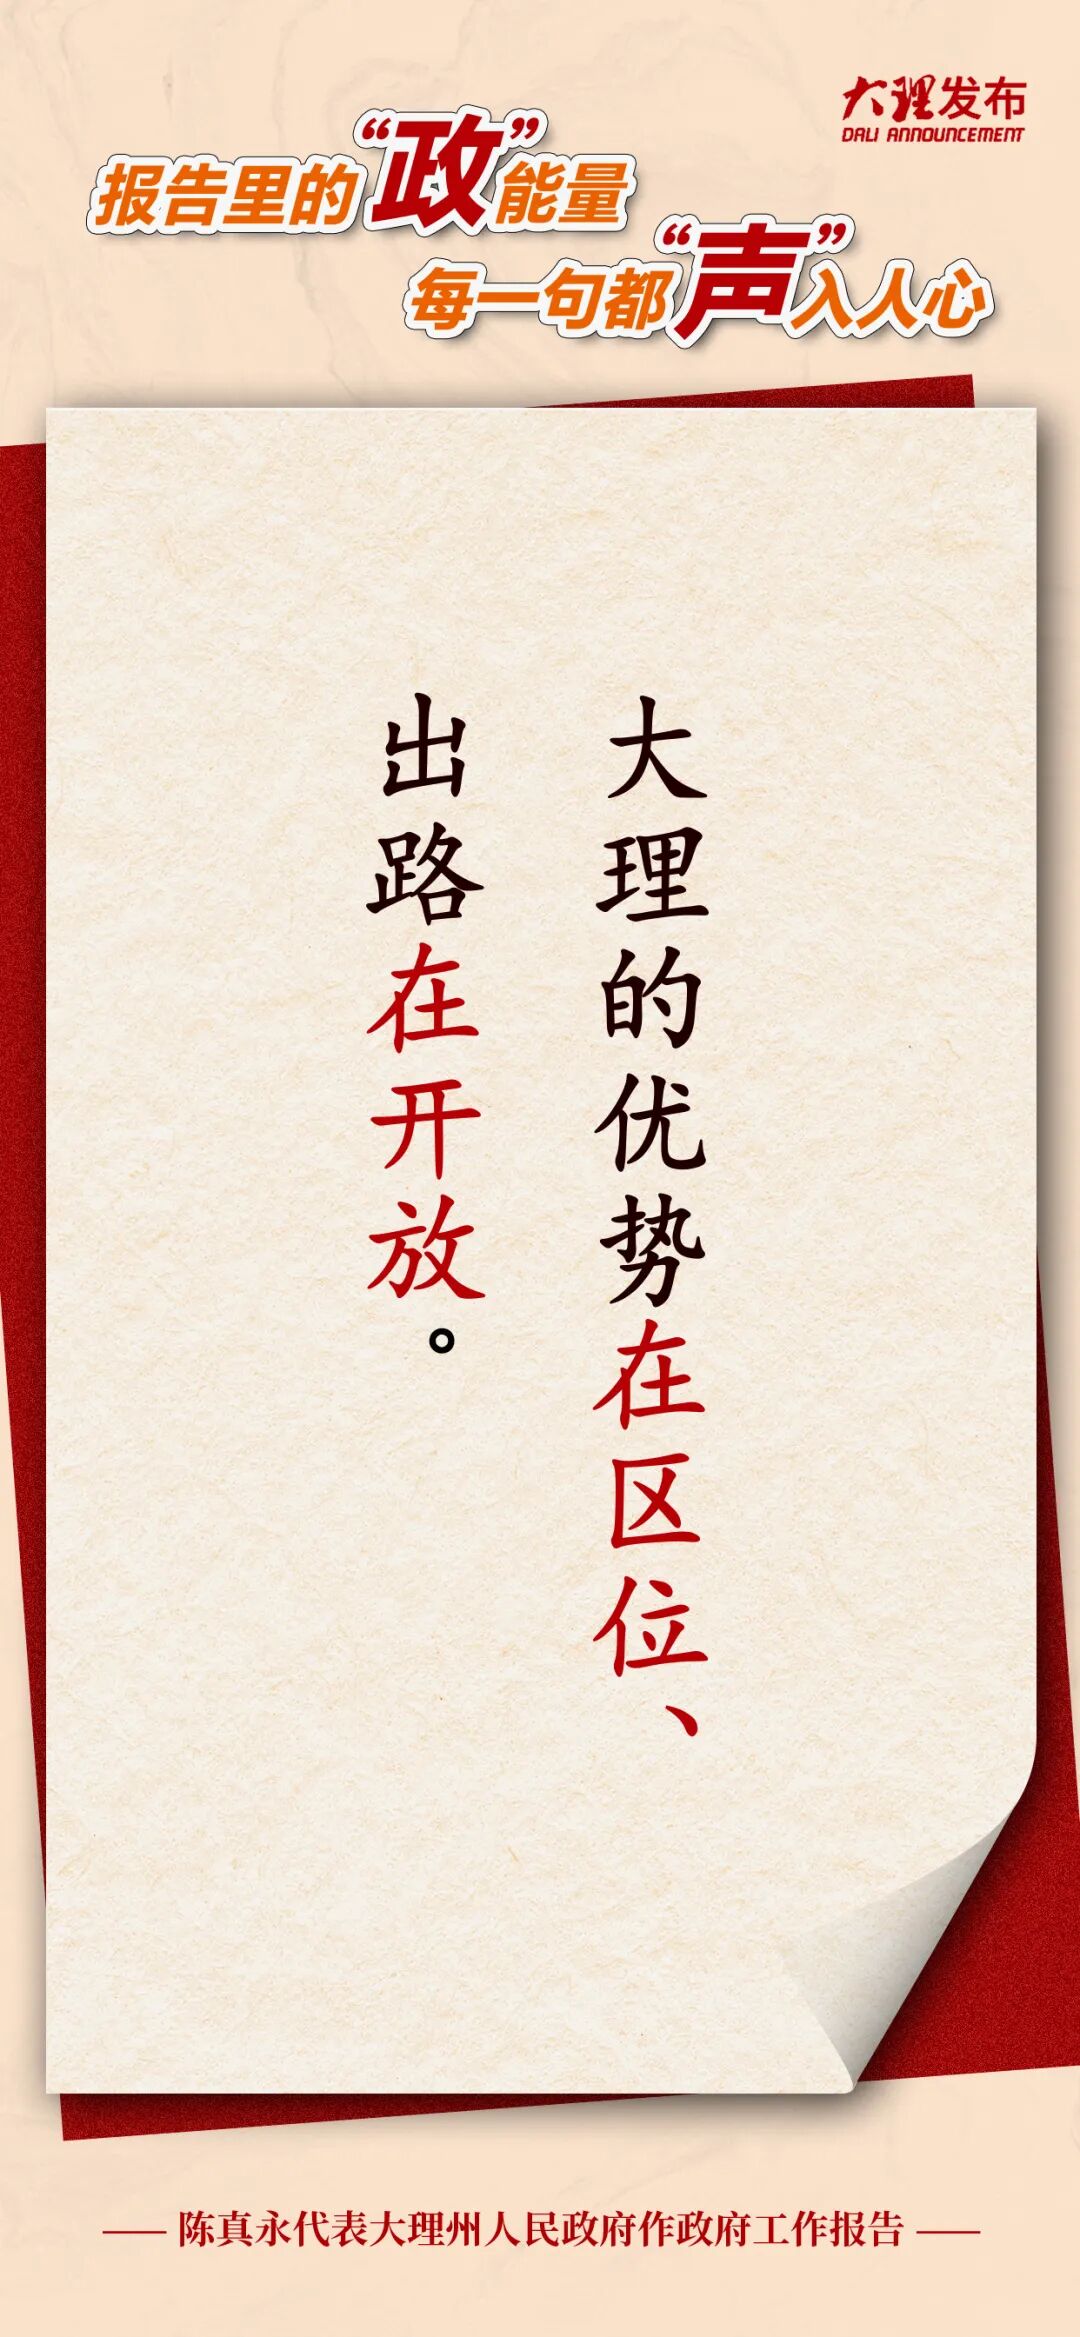 大理发布
DALI ANNOUNCEMENT
报告里的“政”能量
每一句都“声”入人心
大理的优势在区位、
出路在开放。
陈真永代表大理州人民政府作政府工作报告